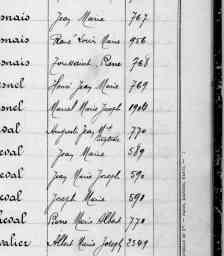 snais Jean Marie 767
snais René Louis Marie 956
snais Toussaint, Pierre 768
esnel Henri Jean Marie 769
snel Marcel Marie Joseph 1904
eval Auguste Jean Mie 770
eval Jean Marie 589
eval Jean Marie Joseph 590
eval Joseph Marie 590
heval Pierre Marie Albert 770
valier Albert Marie Joseph 2549